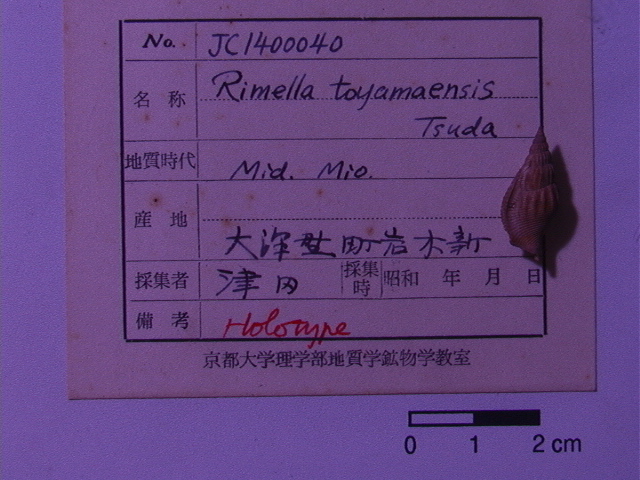 No. JC1400040
名称 Rimella toyamaensis
Tsuda
地質時代 Mid. Mio.
産地
大深 町岩木新
採集者 津田 採集時 昭和 年 月 日
備考 Holotype
京都大学理学部地質学鉱物学教室
0 1 2 cm